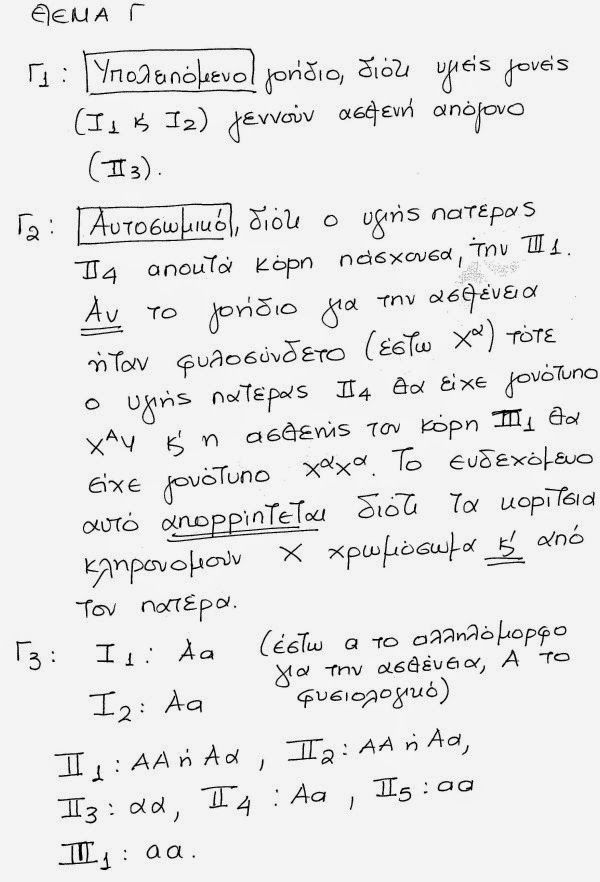 ΘΕΜΑ Γ
Γ1: Υπολειπόμενο γονίδιο, διότι υγιείς γονείς
(I1 κ I2) γεννούν ασθενή απόγονο
(II3).
Γ2: Αυτοσωμικό, διότι ο υγιής πατέρας
II4 αποκτά κόρη πάσχουσα, την III1.
Αν το γονίδιο για την ασθένεια
ήταν φυλοσύνδετο (έστω Χα) τότε
ο υγιής πατέρας II4 θα είχε γονότυπο
ΧΑΥ κ' η ασθενής του κόρη III1 θα
είχε γονότυπο ΧαΧα. Το ενδεχόμενο
αυτό απορρίπτεται διότι τα κορίτσια
κληρονομούν Χ χρωμόσωμα κ' από
τον πατέρα.
Γ3: I1: Αα (έστω α το αλληλόμορφο
για την ασθένεια, Α το
I2: Αα φυσιολογικό)
II1: ΑΑ ή Αα, II2: ΑΑ ή Αα,
II3: αα, II4: Αα, II5: αα
III1: αα.